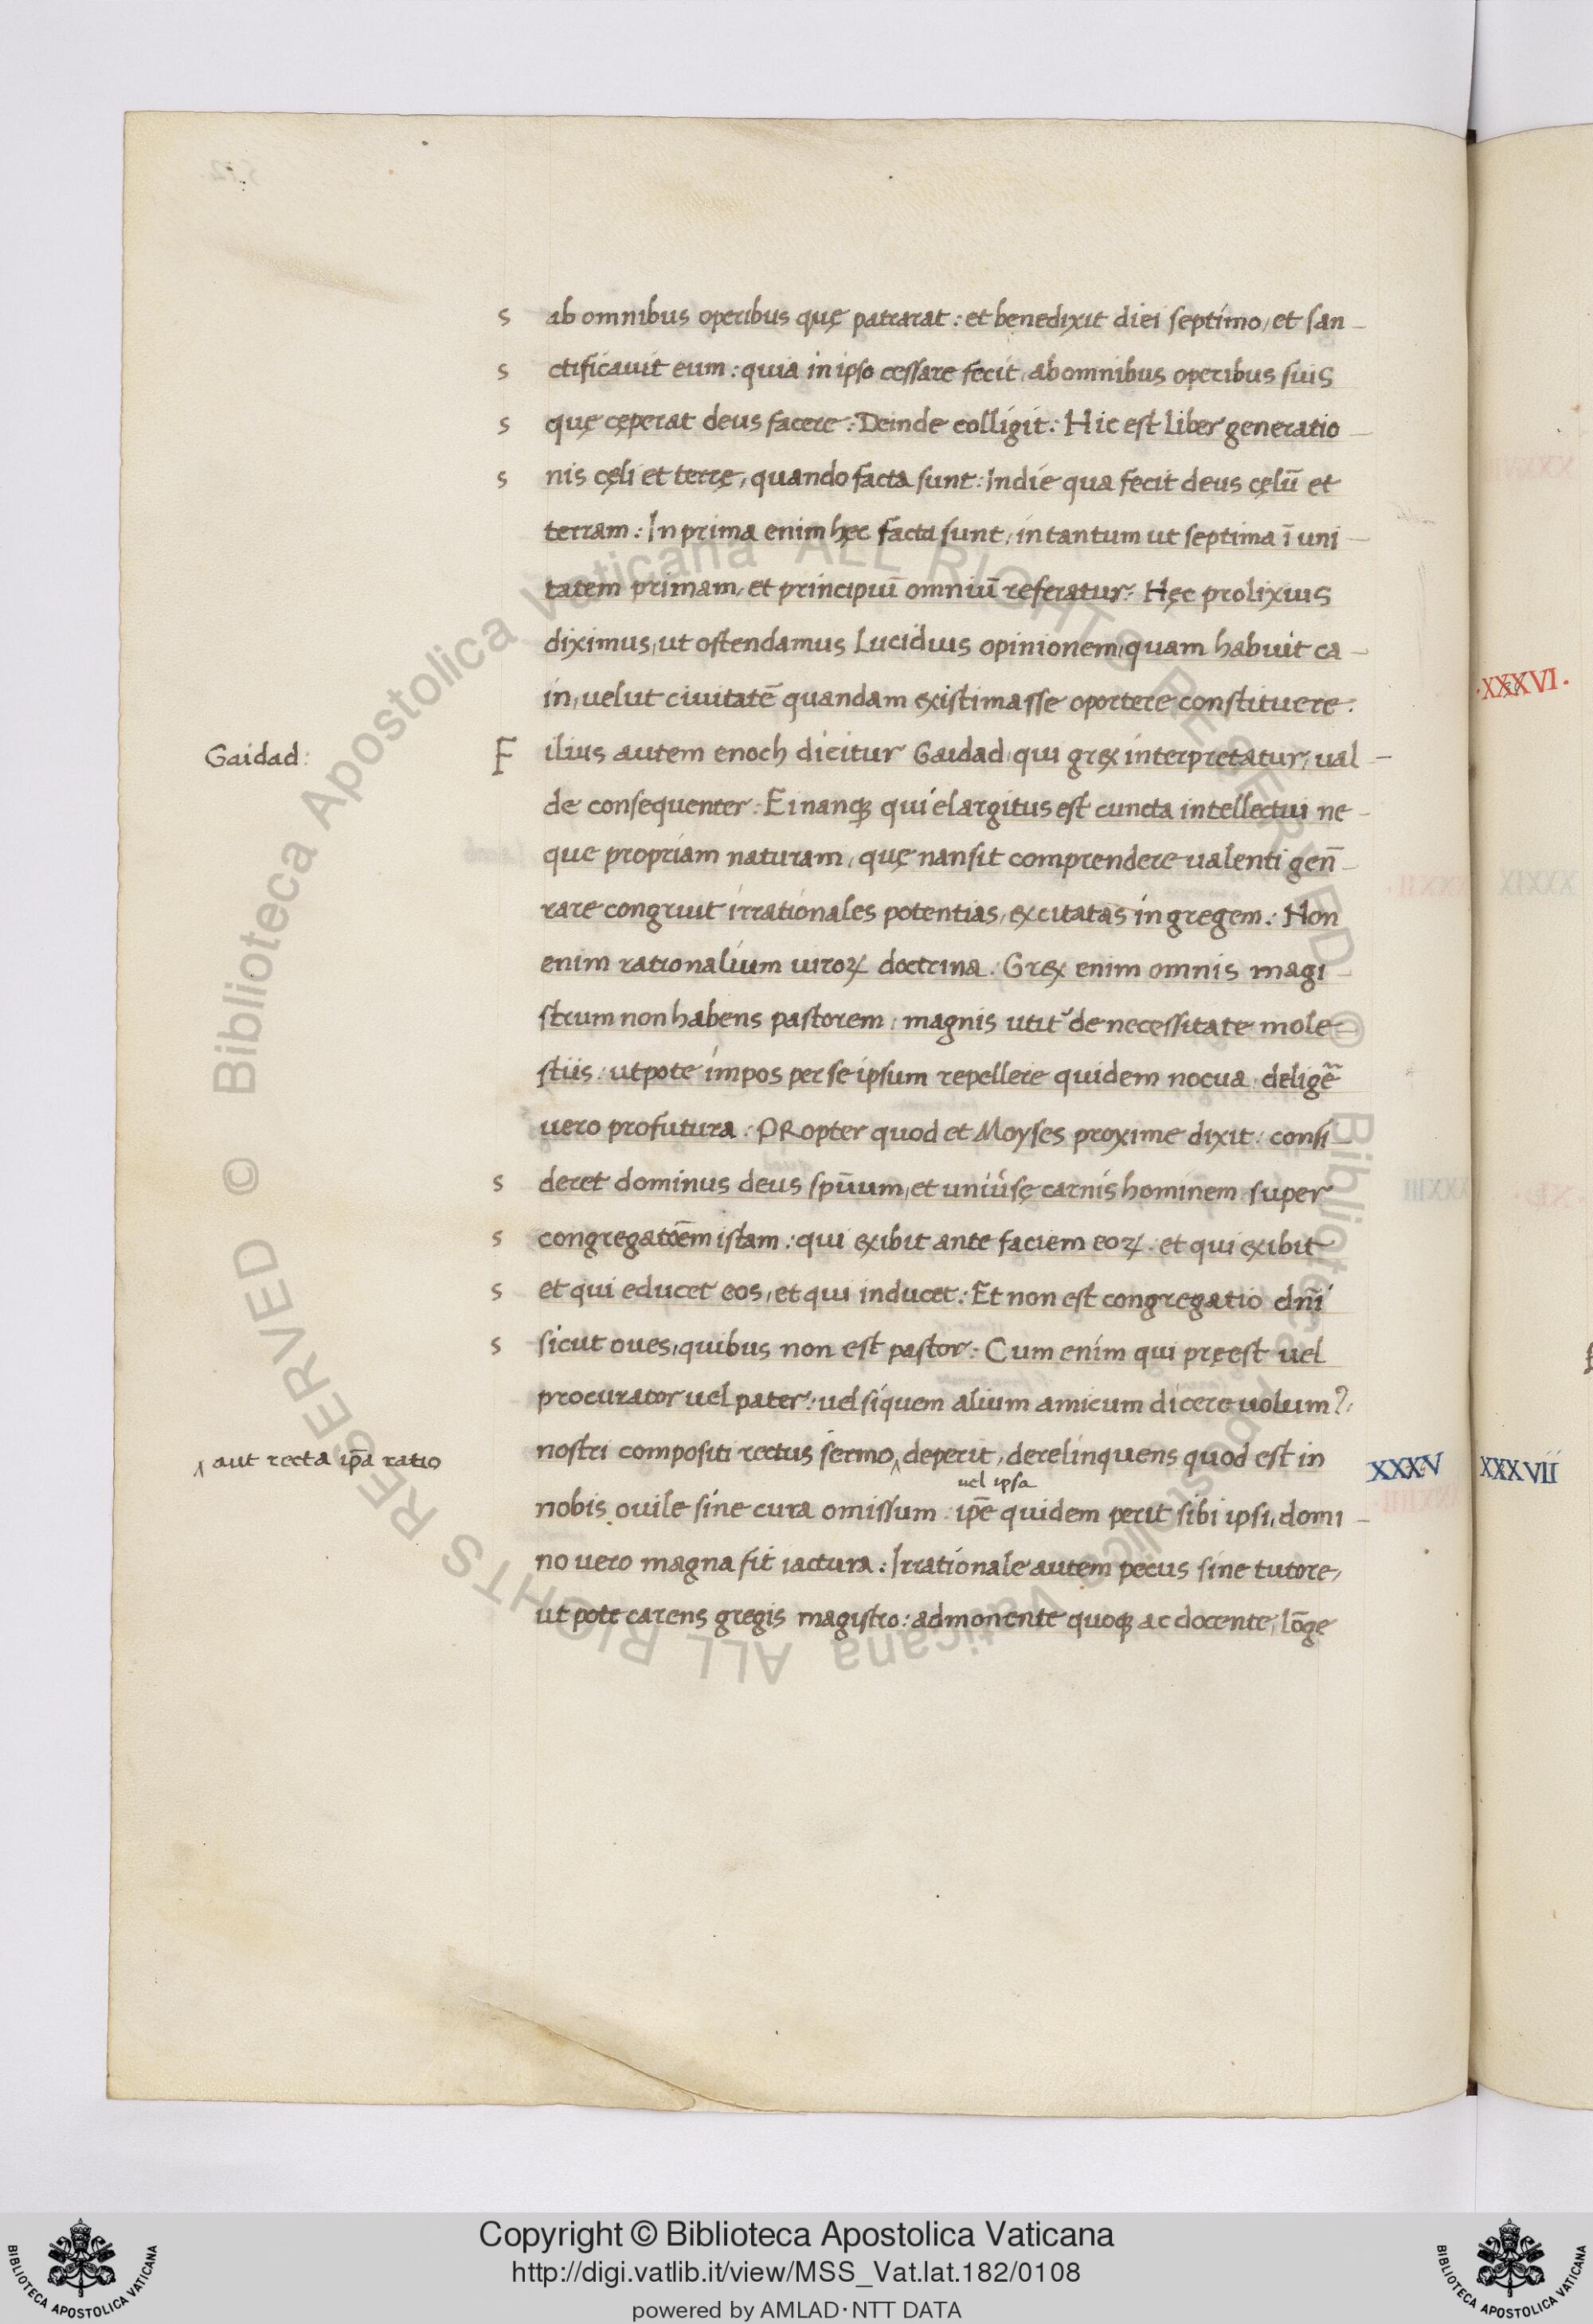 s ab omnibus operibus quę patrarat: et benedixit diei septimo, et san-
s ctificauit eum: quia in ipso cessare fecit, ab omnibus operibus suis
s quę cęperat deus facere: Deinde colligit: Hic est liber generatio-
s nis cęli et terrę, quando facta sunt: In die qua fecit deus cęlū et
terram: In prima enim hęc facta sunt, in tantum ut septima ī uni-
tatem primam, et principiū omniū referatur: Hęc prolixius
diximus, ut ostendamus Lucidius opinionem, quam habuit ca-
in, uelut ciuitatē quandam existimasse oportere constituere.
Gaidad: Filius autem enoch dicitur Gaidad, qui grex interpretatur, ual-
de consequenter: Ei nanqꝫ qui elargitus est cuncta intellectui ne-
que propriam naturam, quę nansit comprendere ualenti gen̄-
rare congruit irrationales potentias, excitatas in gregem: Non
enim rationalium uiroꝝ doctrina: Grex enim omnis magi-
strum non habens pastorem, magnis utit᷑ de necessitate mole-
stiis: utpote impos per se ipsum repellere quidem nocua, deligē
uero profutura: PRopter quod et Moyses proxime dixit: consi-
s deret dominus deus spūum, et uniu᷑sę carnis hominem super
s congregatōem istam: qui exibit ante faciem eoꝝ: et qui exibit
s et qui educet eos, et qui inducet: Et non est congregatio dn̄i
s sicut oues, quibus non est pastor: Cum enim qui pręest uel
procurator uel pater: uel siquem alium amicum dicere uolum⁹:
nostri compositi rectus sermo ‸ deperit, derelinquens quod est in
‸ aut recta ip̄a ratio
XXXV
uel ipsa
nobis ouile sine cura omissum: ip̄e quidem perit sibi ipsi, domi-
no uero magna fit iactura: Irrationale autem pecus sine tutore,
ut pote carens gregis magistro: admonente quoqꝫ ac docente, lōge
·XXXVI·
XXXVII
Copyright © Biblioteca Apostolica Vaticana
http://digi.vatlib.it/view/MSS_Vat.lat.182/0108
powered by AMLAD·NTT DATA
BIBLIOTECA APOSTOLICA VATICANA
BIBLIOTECA APOSTOLICA VATICANA
© Biblioteca Apostolica Vaticana ALL RIGHTS RESERVED © Biblioteca Apostolica Vaticana ALL RIGHTS RESERVED